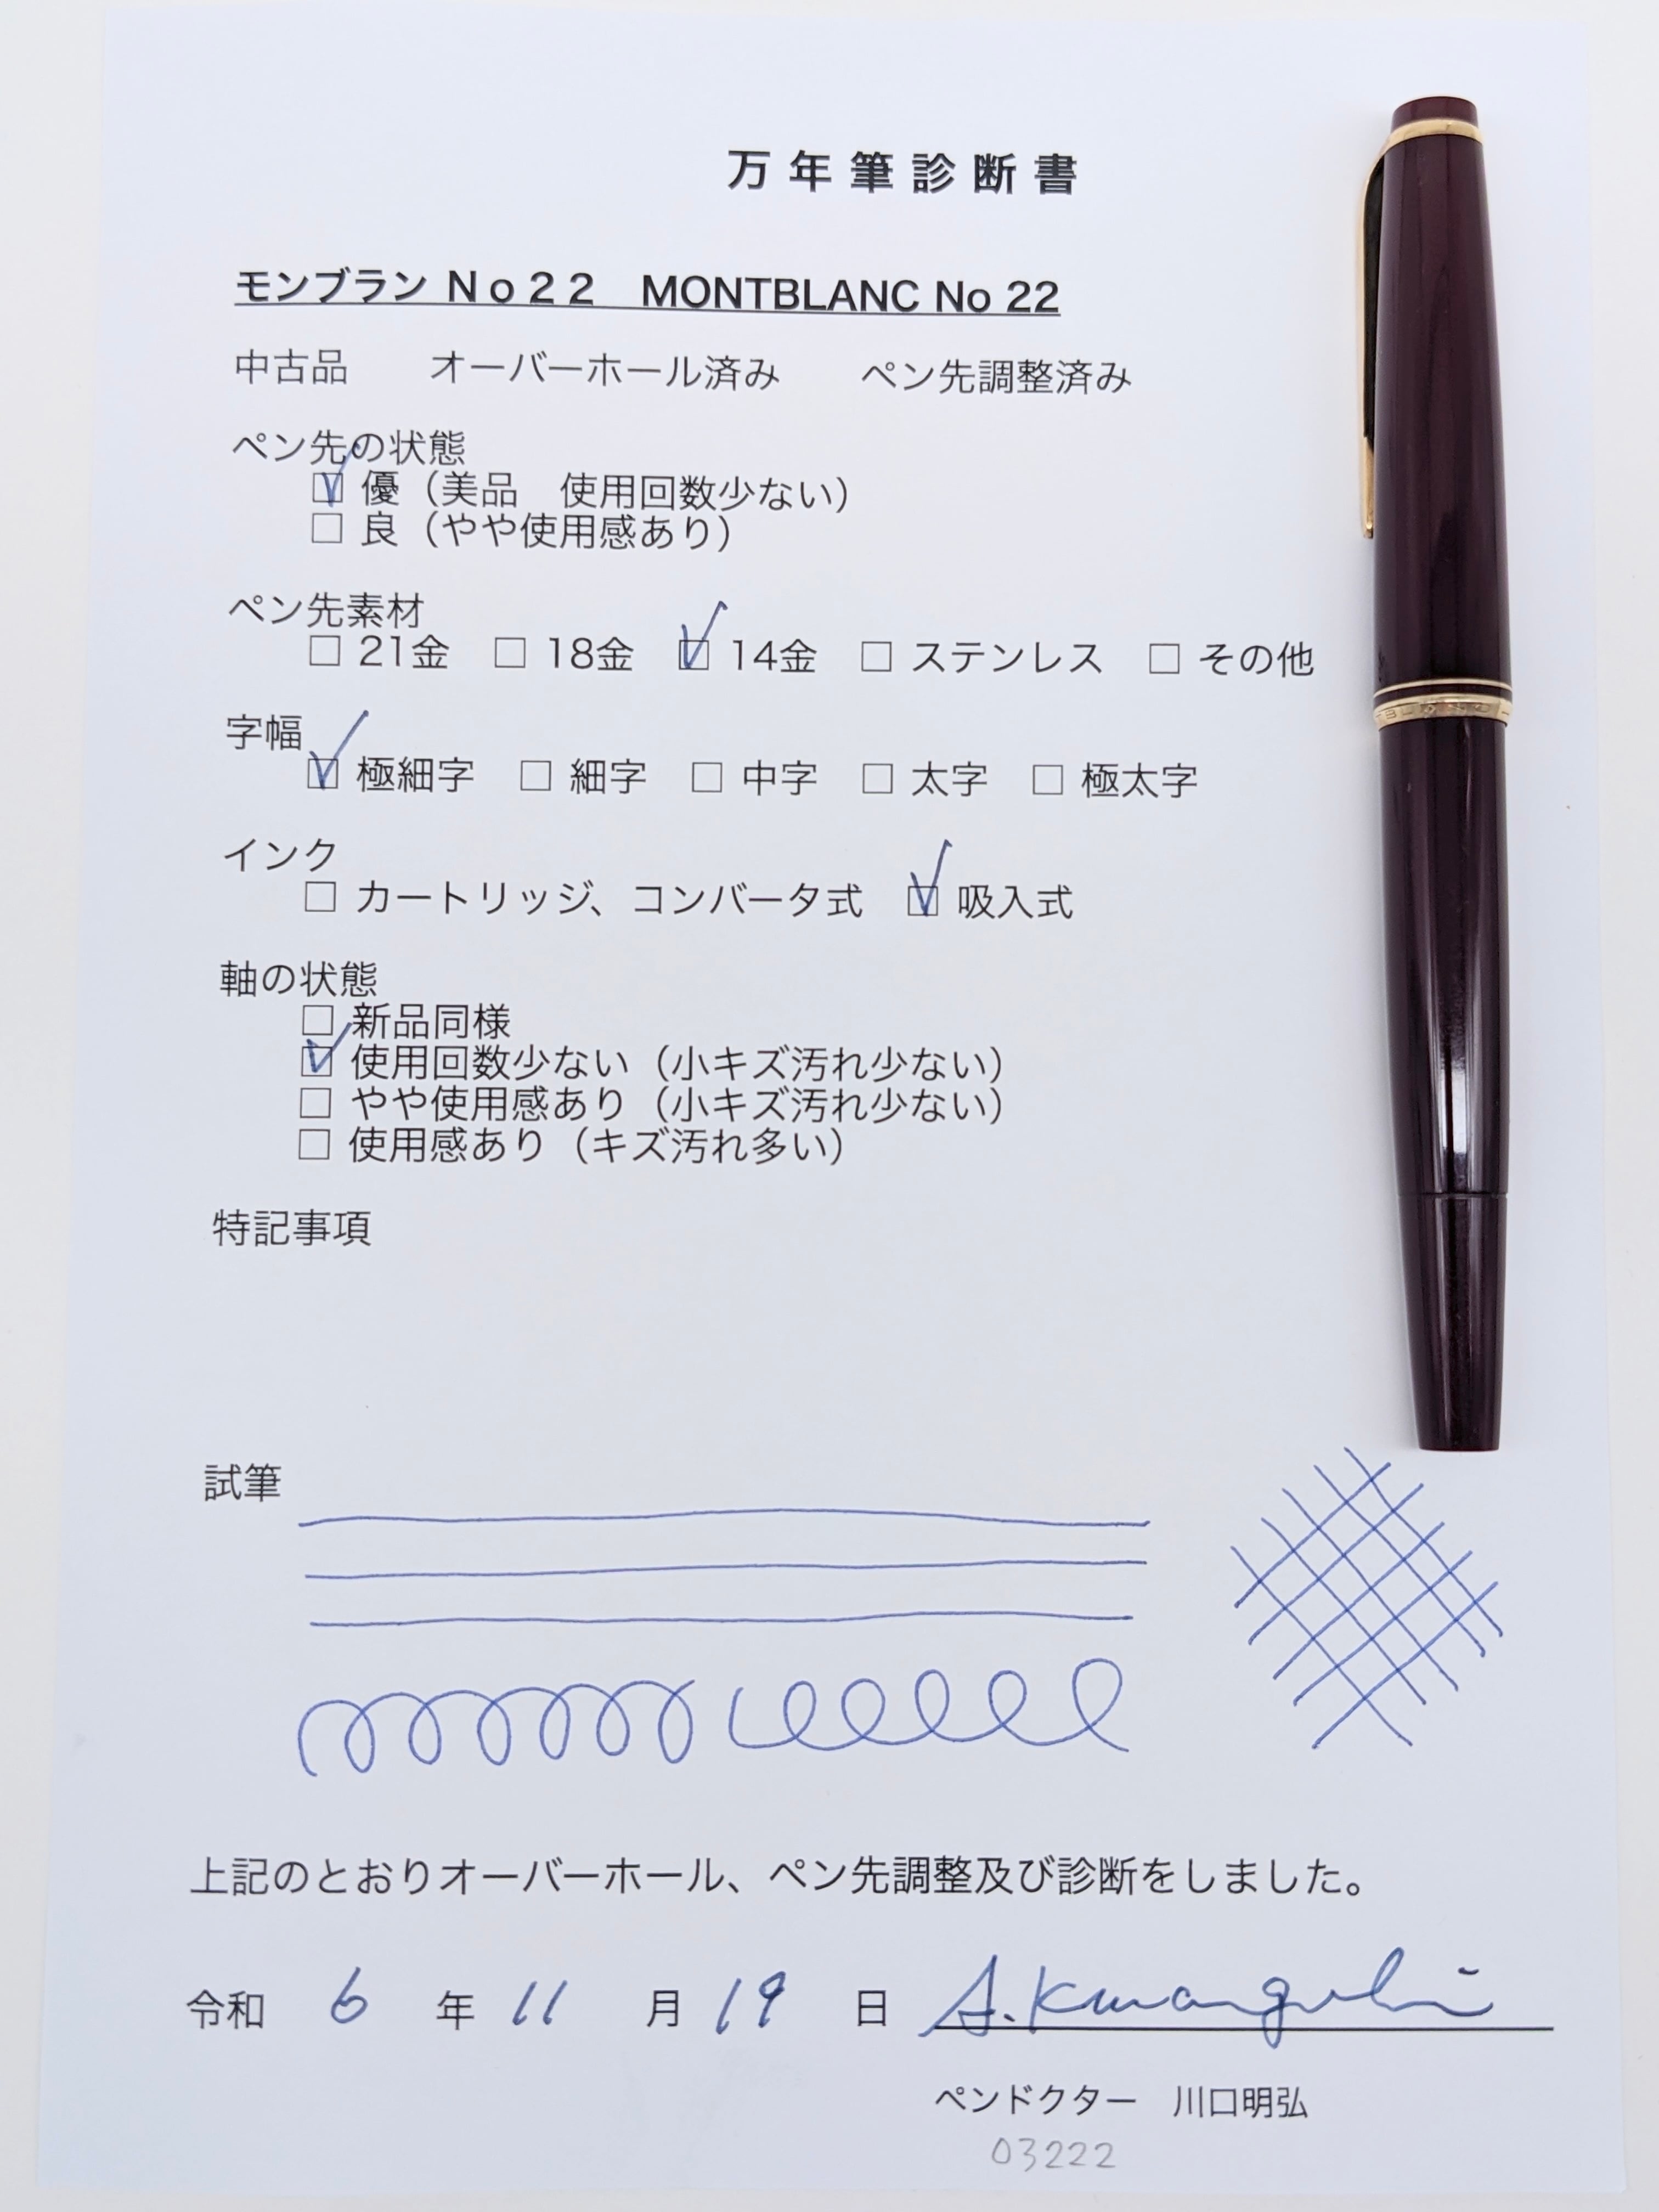 万年筆診断書
モンブラン No22 MONTBLANC No 22
中古品 オーバーホール済み ペン先調整済み
ペン先の状態
☑ 優（美品 使用回数少ない）
☐ 良（やや使用感あり）
ペン先素材
☐ 21金 ☐ 18金 ☑ 14金 ☐ ステンレス ☐ その他
字幅
☑ 極細字 ☐ 細字 ☐ 中字 ☐ 太字 ☐ 極太字
インク
☐ カートリッジ、コンバータ式 ☑ 吸入式
軸の状態
☐ 新品同様
☑ 使用回数少ない（小キズ汚れ少ない）
☐ やや使用感あり（小キズ汚れ少ない）
☐ 使用感あり（キズ汚れ多い）
特記事項
試筆
上記のとおりオーバーホール、ペン先調整及び診断をしました。
令和 6 年 11 月 19 日 A. Kawaguchi
ペンドクター 川口明弘
03222